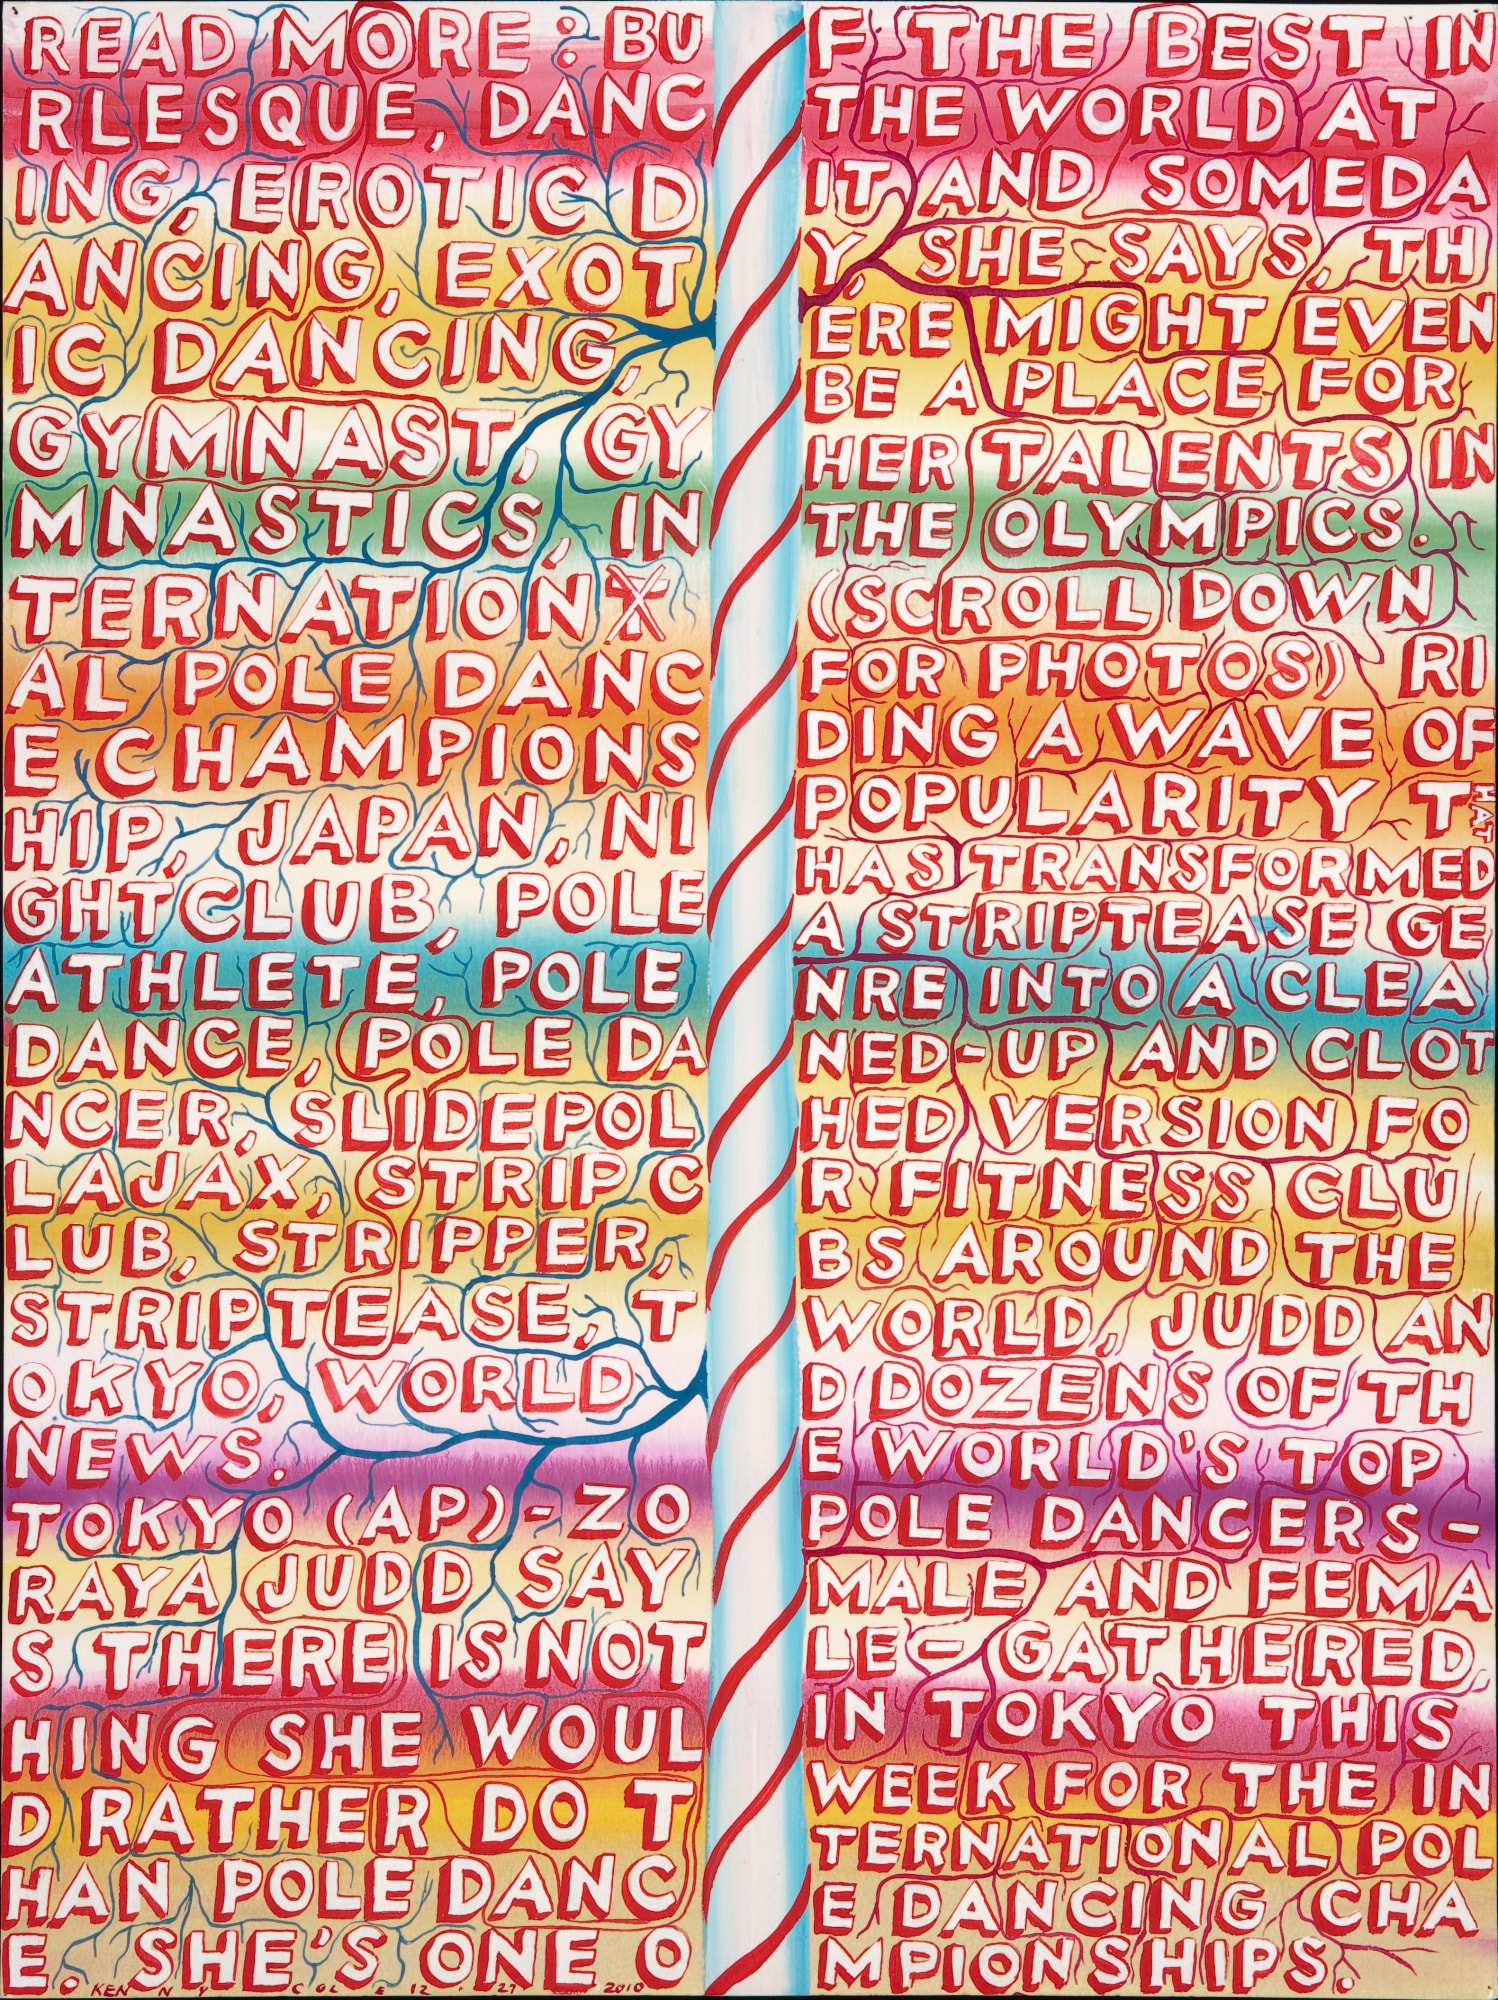 READ MORE : BU
RLESQUE, DANC
ING, EROTIC D
ANCING, EXOT
IC DANCING,
GYMNAST, GY
MNASTICS, IN
TERNATION
AL POLE DANC
E CHAMPIONS
HIP, JAPAN, NI
GHTCLUB, POLE
ATHLETE, POLE
DANCE, POLE DA
NCER, SLIDEPOL
LAJAX, STRIP C
LUB, STRIPPER,
STRIPTEASE, T
OKYO, WORLD
NEWS.
TOKYO (AP)-ZO
RAYA JUDD SAY
S THERE IS NOT
HING SHE WOUL
D RATHER DO T
HAN POLE DANC
E. SHE'S ONE O
KENNY COLE 12.27 2010
F THE BEST IN
THE WORLD AT
IT AND SOMEDA
Y, SHE SAYS, TH
ERE MIGHT EVEN
BE A PLACE FOR
HER TALENTS IN
THE OLYMPICS.
(SCROLL DOWN
FOR PHOTOS) RI
DING A WAVE OF
POPULARITY THAT
HAS TRANSFORMED
A STRIPTEASE GE
NRE INTO A CLEA
NED-UP AND CLOT
HED VERSION FO
R FITNESS CLU
BS AROUND THE
WORLD, JUDD AN
D DOZENS OF TH
E WORLD'S TOP
POLE DANCERS-
MALE AND FEMA
LE- GATHERED
IN TOKYO THIS
WEEK FOR THE IN
TERNATIONAL POL
E DANCING CHA
MPIONSHIPS.